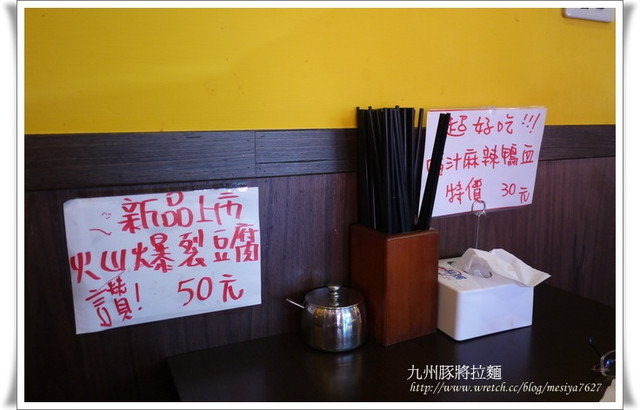 新品上市
火山爆裂豆腐
讚! 50元
超好吃!!!
汁麻辣鴨血
特價 30元
九州豚將拉麵
http://www.wretch.cc/blog/mesiya7627